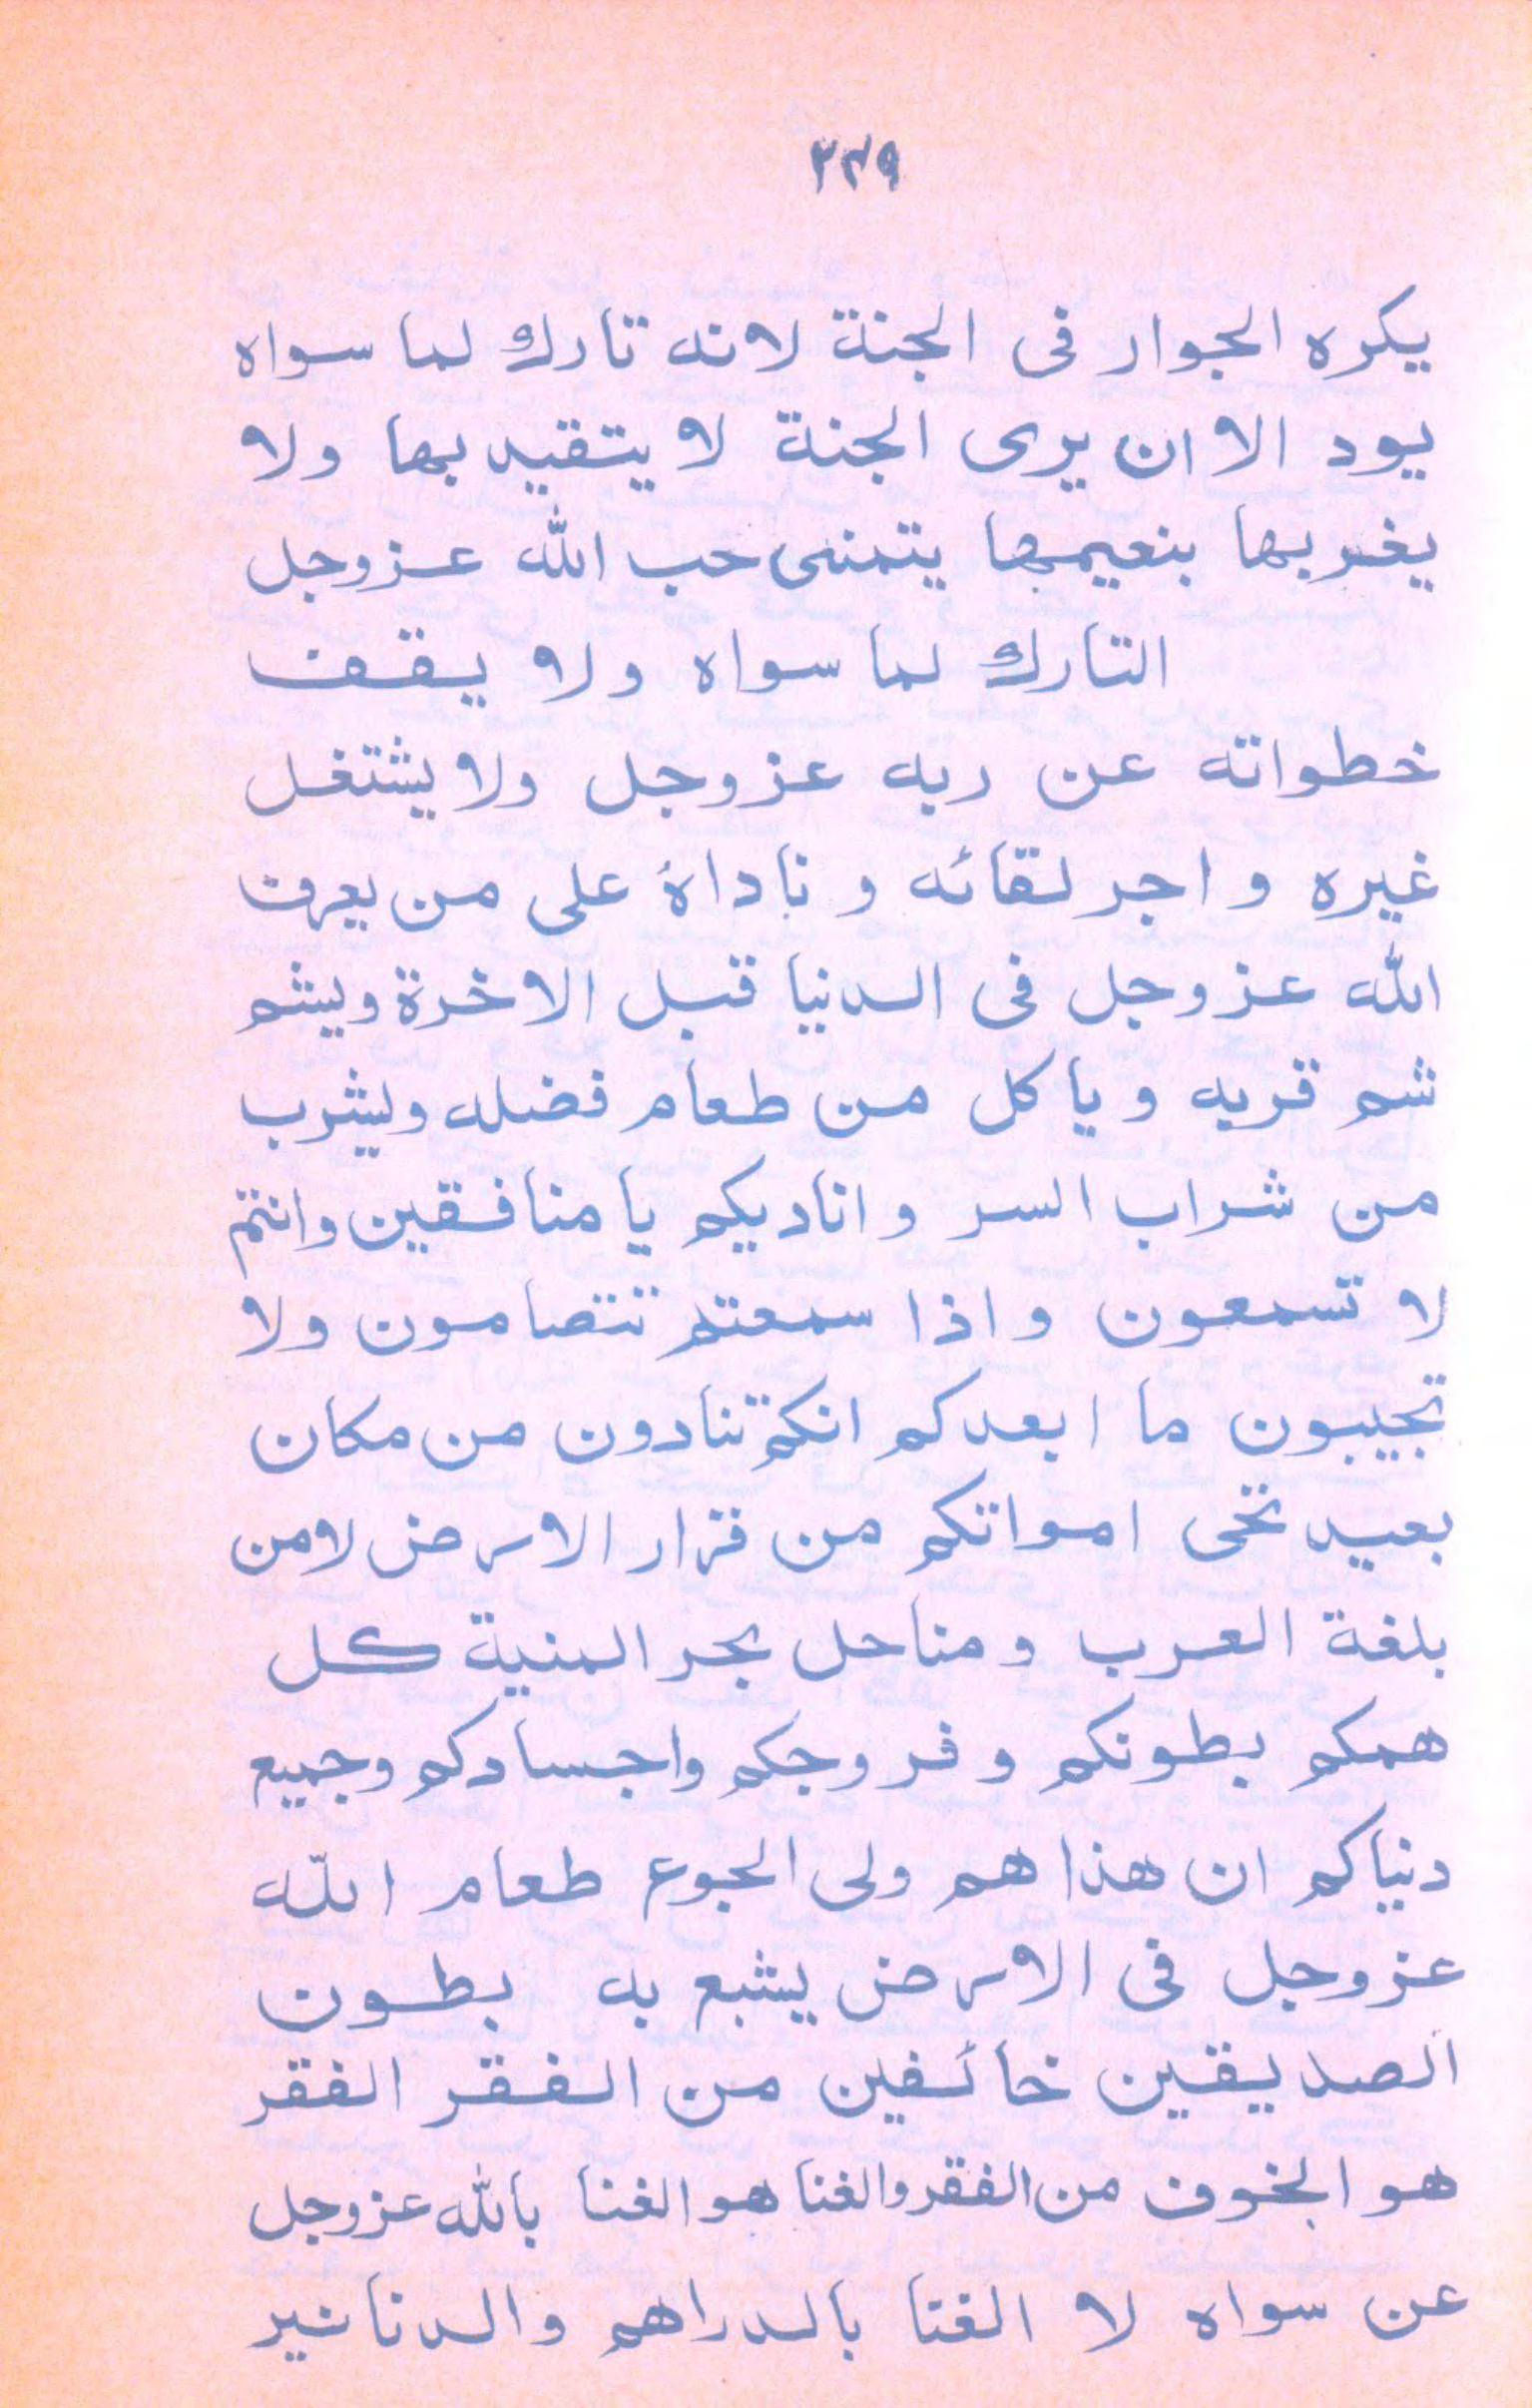 ٢٣٩
يكره الجوار فى الجنة لانه تارك لما سواه
يود الا ان يرى الجنة لا يتقيد بها ولا
يغر بها بنعيمها يتمنى حب الله عزوجل
التارك لما سواه ولا يقف
خطواته عن ربه عزوجل ولا يشتغل
غيره و اجر لقائه و ناداهٔ على من يعرف
الله عزوجل فى الدنيا قبل الاخرة ويشم
شم قربه و ياكل من طعام فضله ويشرب
من شراب السر و اناديكم يا منافقين وانتم
لا تسمعون واذا سمعتم تتصامون ولا
تجيبون ما ابعدكم انكم تنادون من مكان
بعيد تخى امواتكم من قرار الارض لامن
بلغة العرب و مناحل بحر المنية كل
همكم بطونكم و فروجكم واجسادكم وجميع
دنياكم ان هذا هم ولى الجوع طعام الله
عزوجل فى الارض يشبع به بطون
الصديقين خائفين من الفقر الفقر
هو الخوف من الفقر والغنا هو الغنا بالله عزوجل
عن سواه لا الغنا بالدراهم والدنانير